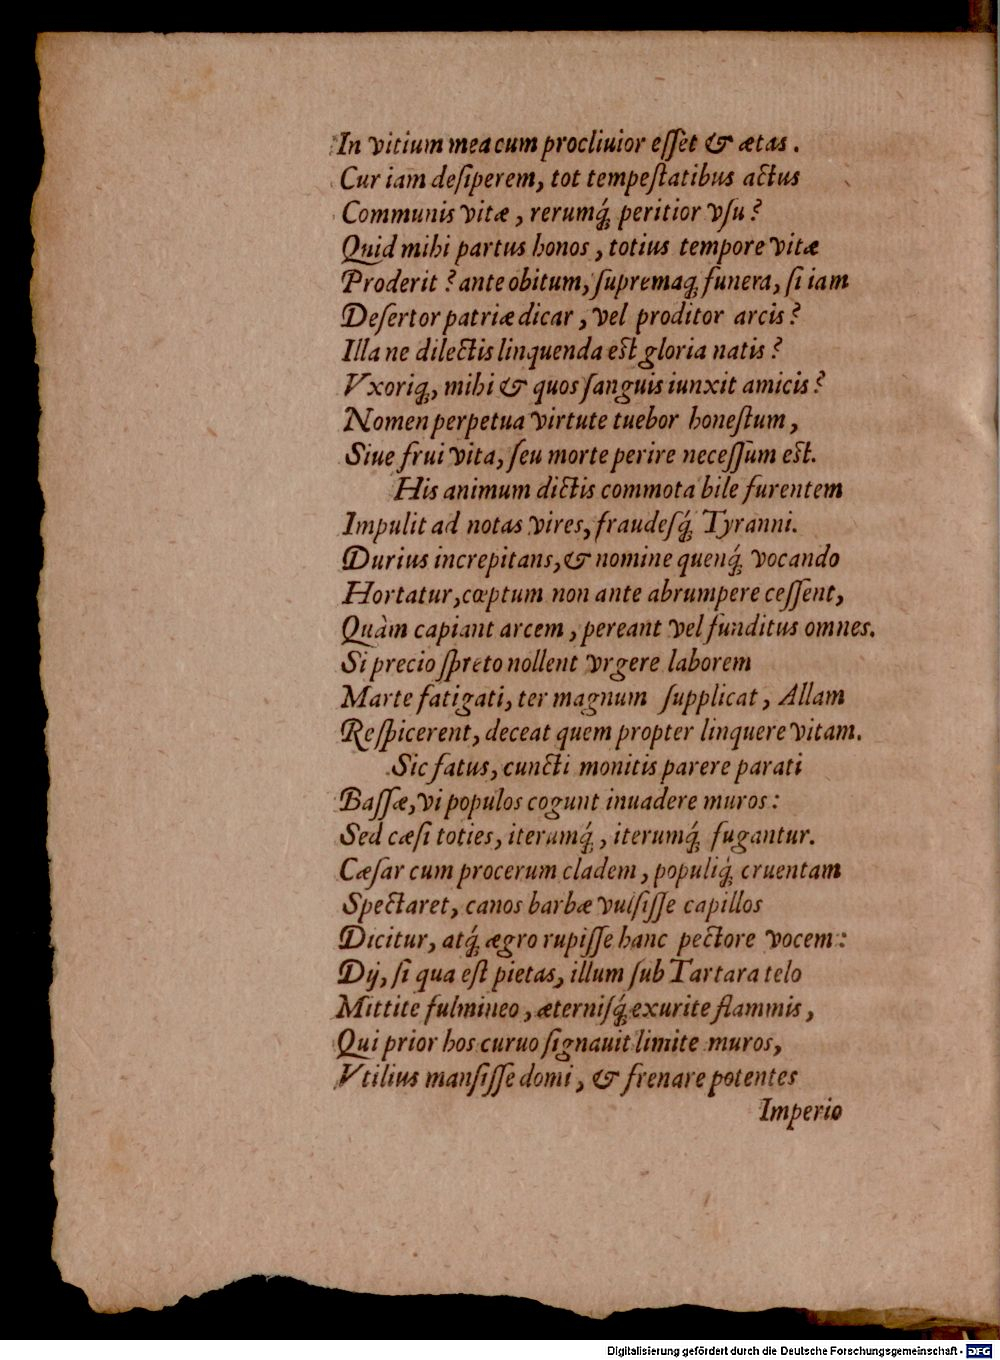 In vitium mea cum procliuior eſſet & ætas.
Cur iam deſiperem, tot tempeſtatibus actus
Communis vitæ, rerumq́; peritior vſu?
Quid mihi partus honos, totius tempore vitæ
Proderit? ante obitum, ſupremaq; funera, ſi iam
Deſertor patriæ dicar, vel proditor arcis?
Illa ne dilectis linquenda eſt gloria natis?
Vxoriq;, mihi & quos ſanguis iunxit amicis?
Nomen perpetua virtute tuebor honeſtum,
Siue frui vita, ſeu morte perire neceſſum eſt.
His animum dictis commota bile furentem
Impulit ad notas vires, fraudeſq́; Tyranni.
Durius increpitans, & nomine quenq́; vocando
Hortatur, cœptum non ante abrumpere ceſſent,
Quàm capiant arcem, pereant vel funditus omnes.
Si precio ſpreto nollent vrgere laborem
Marte fatigati, ter magnum ſupplicat, Allam
Reſpicerent, deceat quem propter linquere vitam.
Sic fatus, cuncti monitis parere parati
Baſſæ, vi populos cogunt inuadere muros:
Sed cæſi toties, iterumq́;, iterumq́; fugantur.
Cæſar cum procerum cladem, populiq́; cruentam
Spectaret, canos barbæ vulſiſſe capillos
Dicitur, atq́; ægro rupiſſe hanc pectore vocem:
Dij, ſi qua eſt pietas, illum ſub Tartara telo
Mittite fulmineo, æterniſq́; exurite flammis,
Qui prior hos curuo ſignauit limite muros,
Vtilius manſiſſe domi, & frenare potentes
Imperio
Digitalisierung gefördert durch die Deutsche Forschungsgemeinschaft - DFG